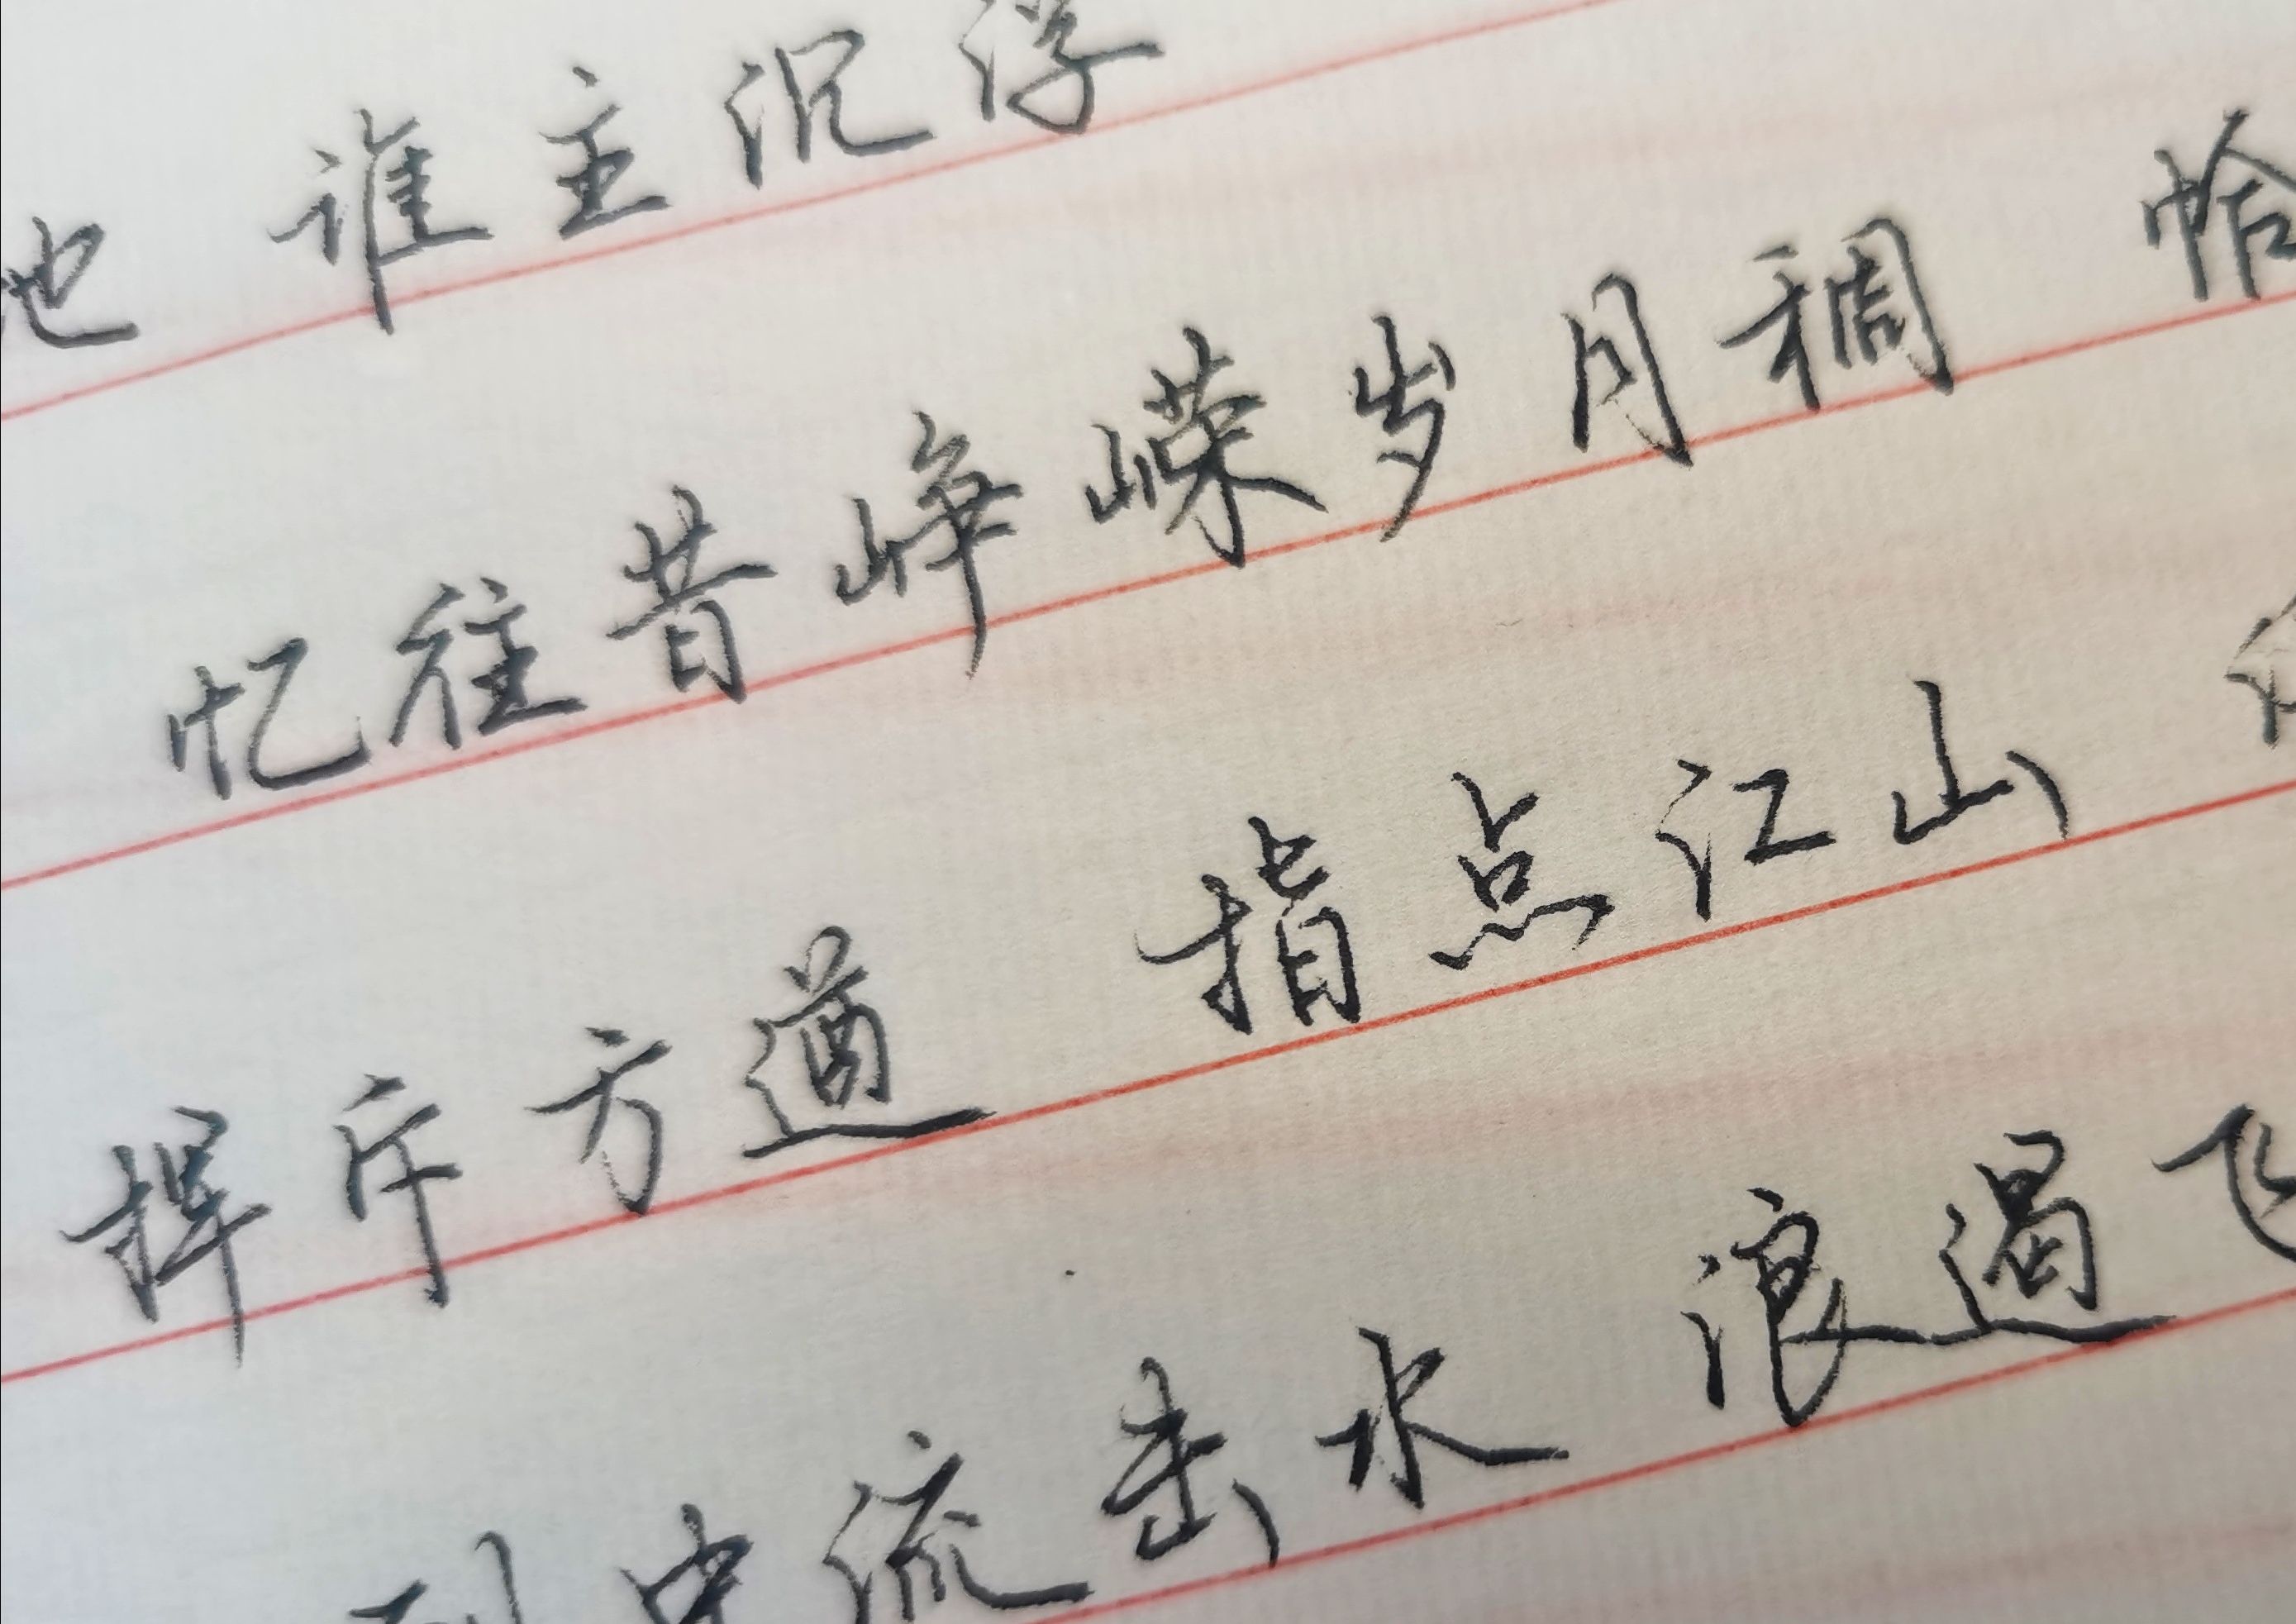 地 谁主沉浮
忆往昔峥嵘岁月稠 恰
挥斥方遒 指点江山
到中流击水 浪遏飞